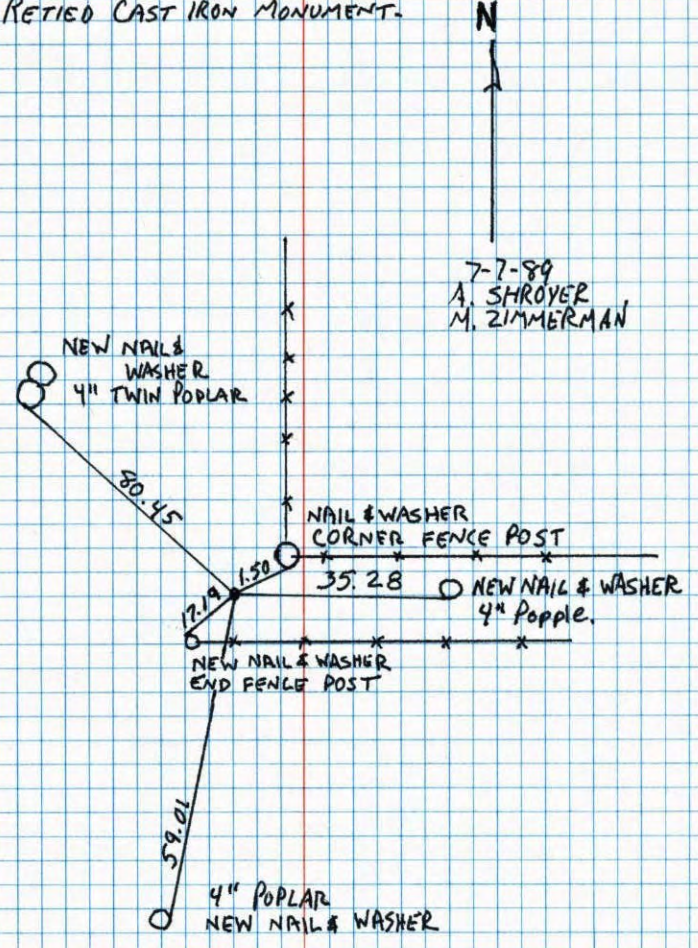 RETIED CAST IRON MONUMENT.
N
7-7-89
A. SHROYER
M. ZIMMERMAN
NEW NAIL &
WASHER
4" TWIN POPLAR
80.45
NAIL & WASHER
CORNER FENCE POST
1.50
35.28
NEW NAIL & WASHER
4" Popple.
17.19
NEW NAIL & WASHER
END FENCE POST
59.01
4" POPLAR
NEW NAIL & WASHER